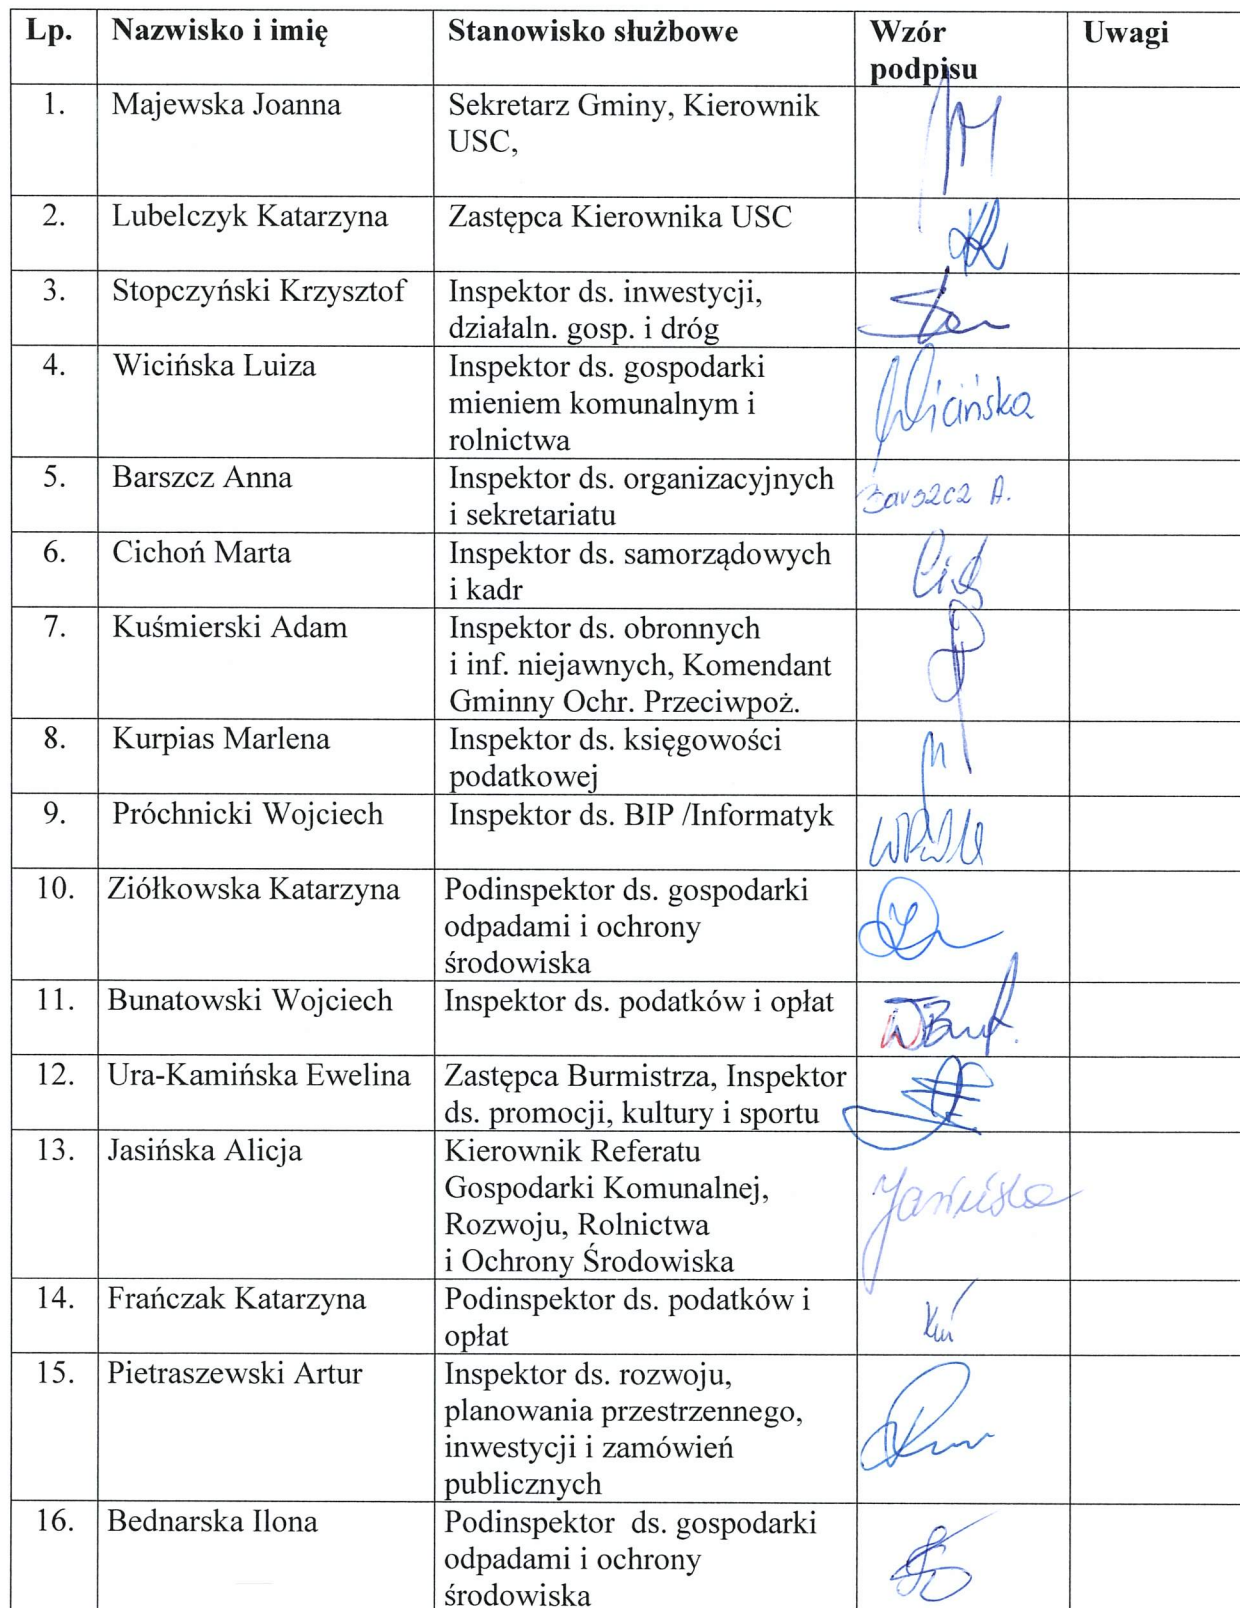 Lp. Nazwisko i imię Stanowisko służbowe Wzór Uwagi
podpisu
1. Majewska Joanna Sekretarz Gminy, Kierownik
USC,
2. Lubelczyk Katarzyna Zastępca Kierownika USC
3. Stopczyński Krzysztof Inspektor ds. inwestycji,
działaln. gosp. i dróg
4. Wicińska Luiza Inspektor ds. gospodarki
mieniem komunalnym i Wicińska
rolnictwa
5. Barszcz Anna Inspektor ds. organizacyjnych
i sekretariatu Barszcz A.
6. Cichoń Marta Inspektor ds. samorządowych
i kadr
7. Kuśmierski Adam Inspektor ds. obronnych
i inf. niejawnych, Komendant
Gminny Ochr. Przeciwpoż.
8. Kurpias Marlena Inspektor ds. księgowości
podatkowej
9. Próchnicki Wojciech Inspektor ds. BIP /Informatyk
10. Ziółkowska Katarzyna Podinspektor ds. gospodarki
odpadami i ochrony
środowiska
11. Bunatowski Wojciech Inspektor ds. podatków i opłat
12. Ura-Kamińska Ewelina Zastępca Burmistrza, Inspektor
ds. promocji, kultury i sportu
13. Jasińska Alicja Kierownik Referatu
Gospodarki Komunalnej, Jasińska
Rozwoju, Rolnictwa
i Ochrony Środowiska
14. Frańczak Katarzyna Podinspektor ds. podatków i
opłat
15. Pietraszewski Artur Inspektor ds. rozwoju,
planowania przestrzennego,
inwestycji i zamówień
publicznych
16. Bednarska Ilona Podinspektor ds. gospodarki
odpadami i ochrony
środowiska